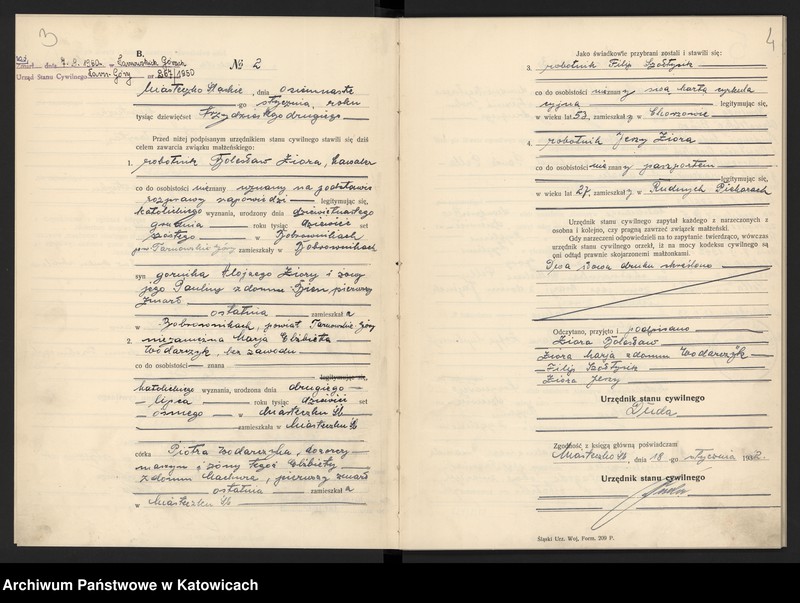 3
B.
dnia 7.2.1950 w Tarnowskich Górach
Urząd Stanu Cywilnego Tarn. Góry nr 267/1950
№ 2
Miasteczko Śląskie, dnia osiemnaste
go stycznia, roku
tysiąc dziewięćset trzydziestego drugiego
Przed niżej podpisanym urzędnikiem stanu cywilnego stawili się dziś
celem zawarcia związku małżeńskiego:
1. robotnik Bolesław Ziora, kawaler
co do osobistości nieznany uznany na podstawie
rozprawy zapowiedzi legitymując się,
katolickiego wyznania, urodzony dnia dziewiętnastego
grudnia roku tysiąc dziewięć set
szóstego w Bobrownikach
pow Tarnowskie Góry zamieszkały w Bobrownikach
syn górnika Alojzego Ziory i żony
jego Pauliny z domu Bien, pierwszy
zmarł
ostatnia zamieszkała
w Bobrownikach, powiat Tarnowskie Góry
2. niezamężna Marja Elżbieta
Wodarczyk, bez zawodu
co do osobistości znana
legitymując się,
katolickiego wyznania, urodzona dnia drugiego
lipca roku tysiąc dziewięć set
ósmego w Miasteczku Śl.
zamieszkała w Miasteczku Śl.
córka Piotra Wodarczyka,
i żony tegoż Elżbiety
z domu Machura, pierwszy zmarł
ostatnia zamieszkała
w Miasteczku Śl.
4
Jako świadkowie przybrani zostali i stawili się:
3. robotnik Filip Szołtysik
co do osobistości nieznany kartą cyrkula
cyjną legitymując się,
w wieku lat 53, zamieszkały w Chorzowie
4. robotnik Jerzy Ziora
co do osobistości nieznany paszportem
legitymując się,
w wieku lat 27, zamieszkały w Rudnych Piekarach
Urzędnik stanu cywilnego zapytał każdego z narzeczonych z
osobna i kolejno, czy pragną zawrzeć związek małżeński.
Gdy narzeczeni odpowiedzieli na to zapytanie twierdząco, wówczas
urzędnik stanu cywilnego orzekł, iż na mocy kodeksu cywilnego są
oni odtąd prawnie skojarzonemi małżonkami.
słowa druku skreślono
Odczytano, przyjęto i podpisano
Ziora Bolesław
Ziora Marja z domu Wodarczyk
Filip Szołtysik
Ziora Jerzy
Urzędnik stanu cywilnego
Duda
Zgodność z księgą główną poświadczam
Miasteczko Śl., dnia 18 -go stycznia 1932.
Urzędnik stanu cywilnego
Śląski Urz. Woj. Form. 209 P.
Archiwum Państwowe w Katowicach